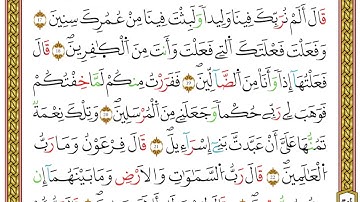 قَالَ أَلَمْ نُرَبِّكَ فِينَا وَلِيدًا وَلَبِثْتَ فِينَا مِنْ عُمُرِكَ سِنِينَ ۝١٨
وَفَعَلْتَ فَعْلَتَكَ ٱلَّتِى فَعَلْتَ وَأَنتَ مِنَ ٱلْكَٰفِرِينَ ۝١٩ قَالَ
فَعَلْتُهَآ إِذًا وَأَنَا۠ مِنَ ٱلضَّآلِّينَ ۝٢٠ فَفَرَرْتُ مِنكُمْ لَمَّا خِفْتُكُمْ
فَوَهَبَ لِى رَبِّى حُكْمًا وَجَعَلَنِى مِنَ ٱلْمُرْسَلِينَ ۝٢١ وَتِلْكَ نِعْمَةٌ
تَمُنُّهَا عَلَىَّ أَنْ عَبَّدتَّ بَنِىٓ إِسْرَٰٓءِيلَ ۝٢٢ قَالَ فِرْعَوْنُ وَمَا رَبُّ
ٱلْعَٰلَمِينَ ۝٢٣ قَالَ رَبُّ ٱلسَّمَٰوَٰتِ وَٱلْأَرْضِ وَمَا بَيْنَهُمَآ إِن